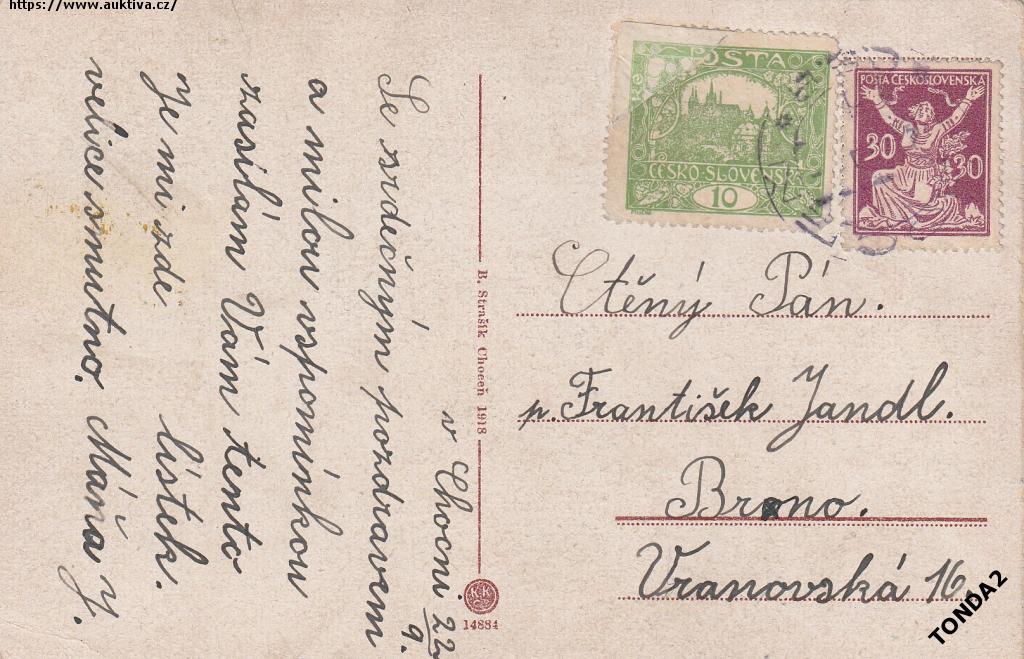 https://www.auktiva.cz/
v Chocni 22/9.
Se srdečným pozdravem
a milou vspomínkou
zasílám Vám tento
lístek.
Je mi zde
velice smutno. Máňa J.
B. Strašík Choceň 1918
K.K.
14884
POŠTA
ČESKO-SLOVENSKÁ
10
POŠTA ČESKOSLOVENSKÁ
30 30
Ctěný Pán.
p. František Jandl.
Brno.
Vranovská 16.
TONDA2